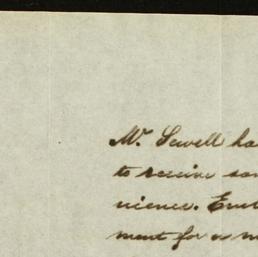 Mr. Sewell ha
to receive som
nience. Encl
ment for as m